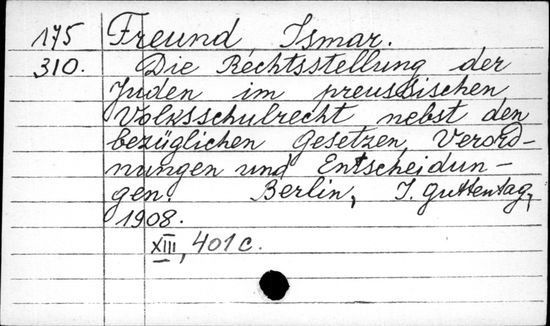 175 Freund Ismar.
310. Die Rechtsstellung der
Juden im preussischen
Volksschulrecht nebst den
bezüglichen Gesetzen, Verord-
nungen und Entscheidun-
gen. Berlin, J. Guttentag,
1908.
XIII, 401 c.